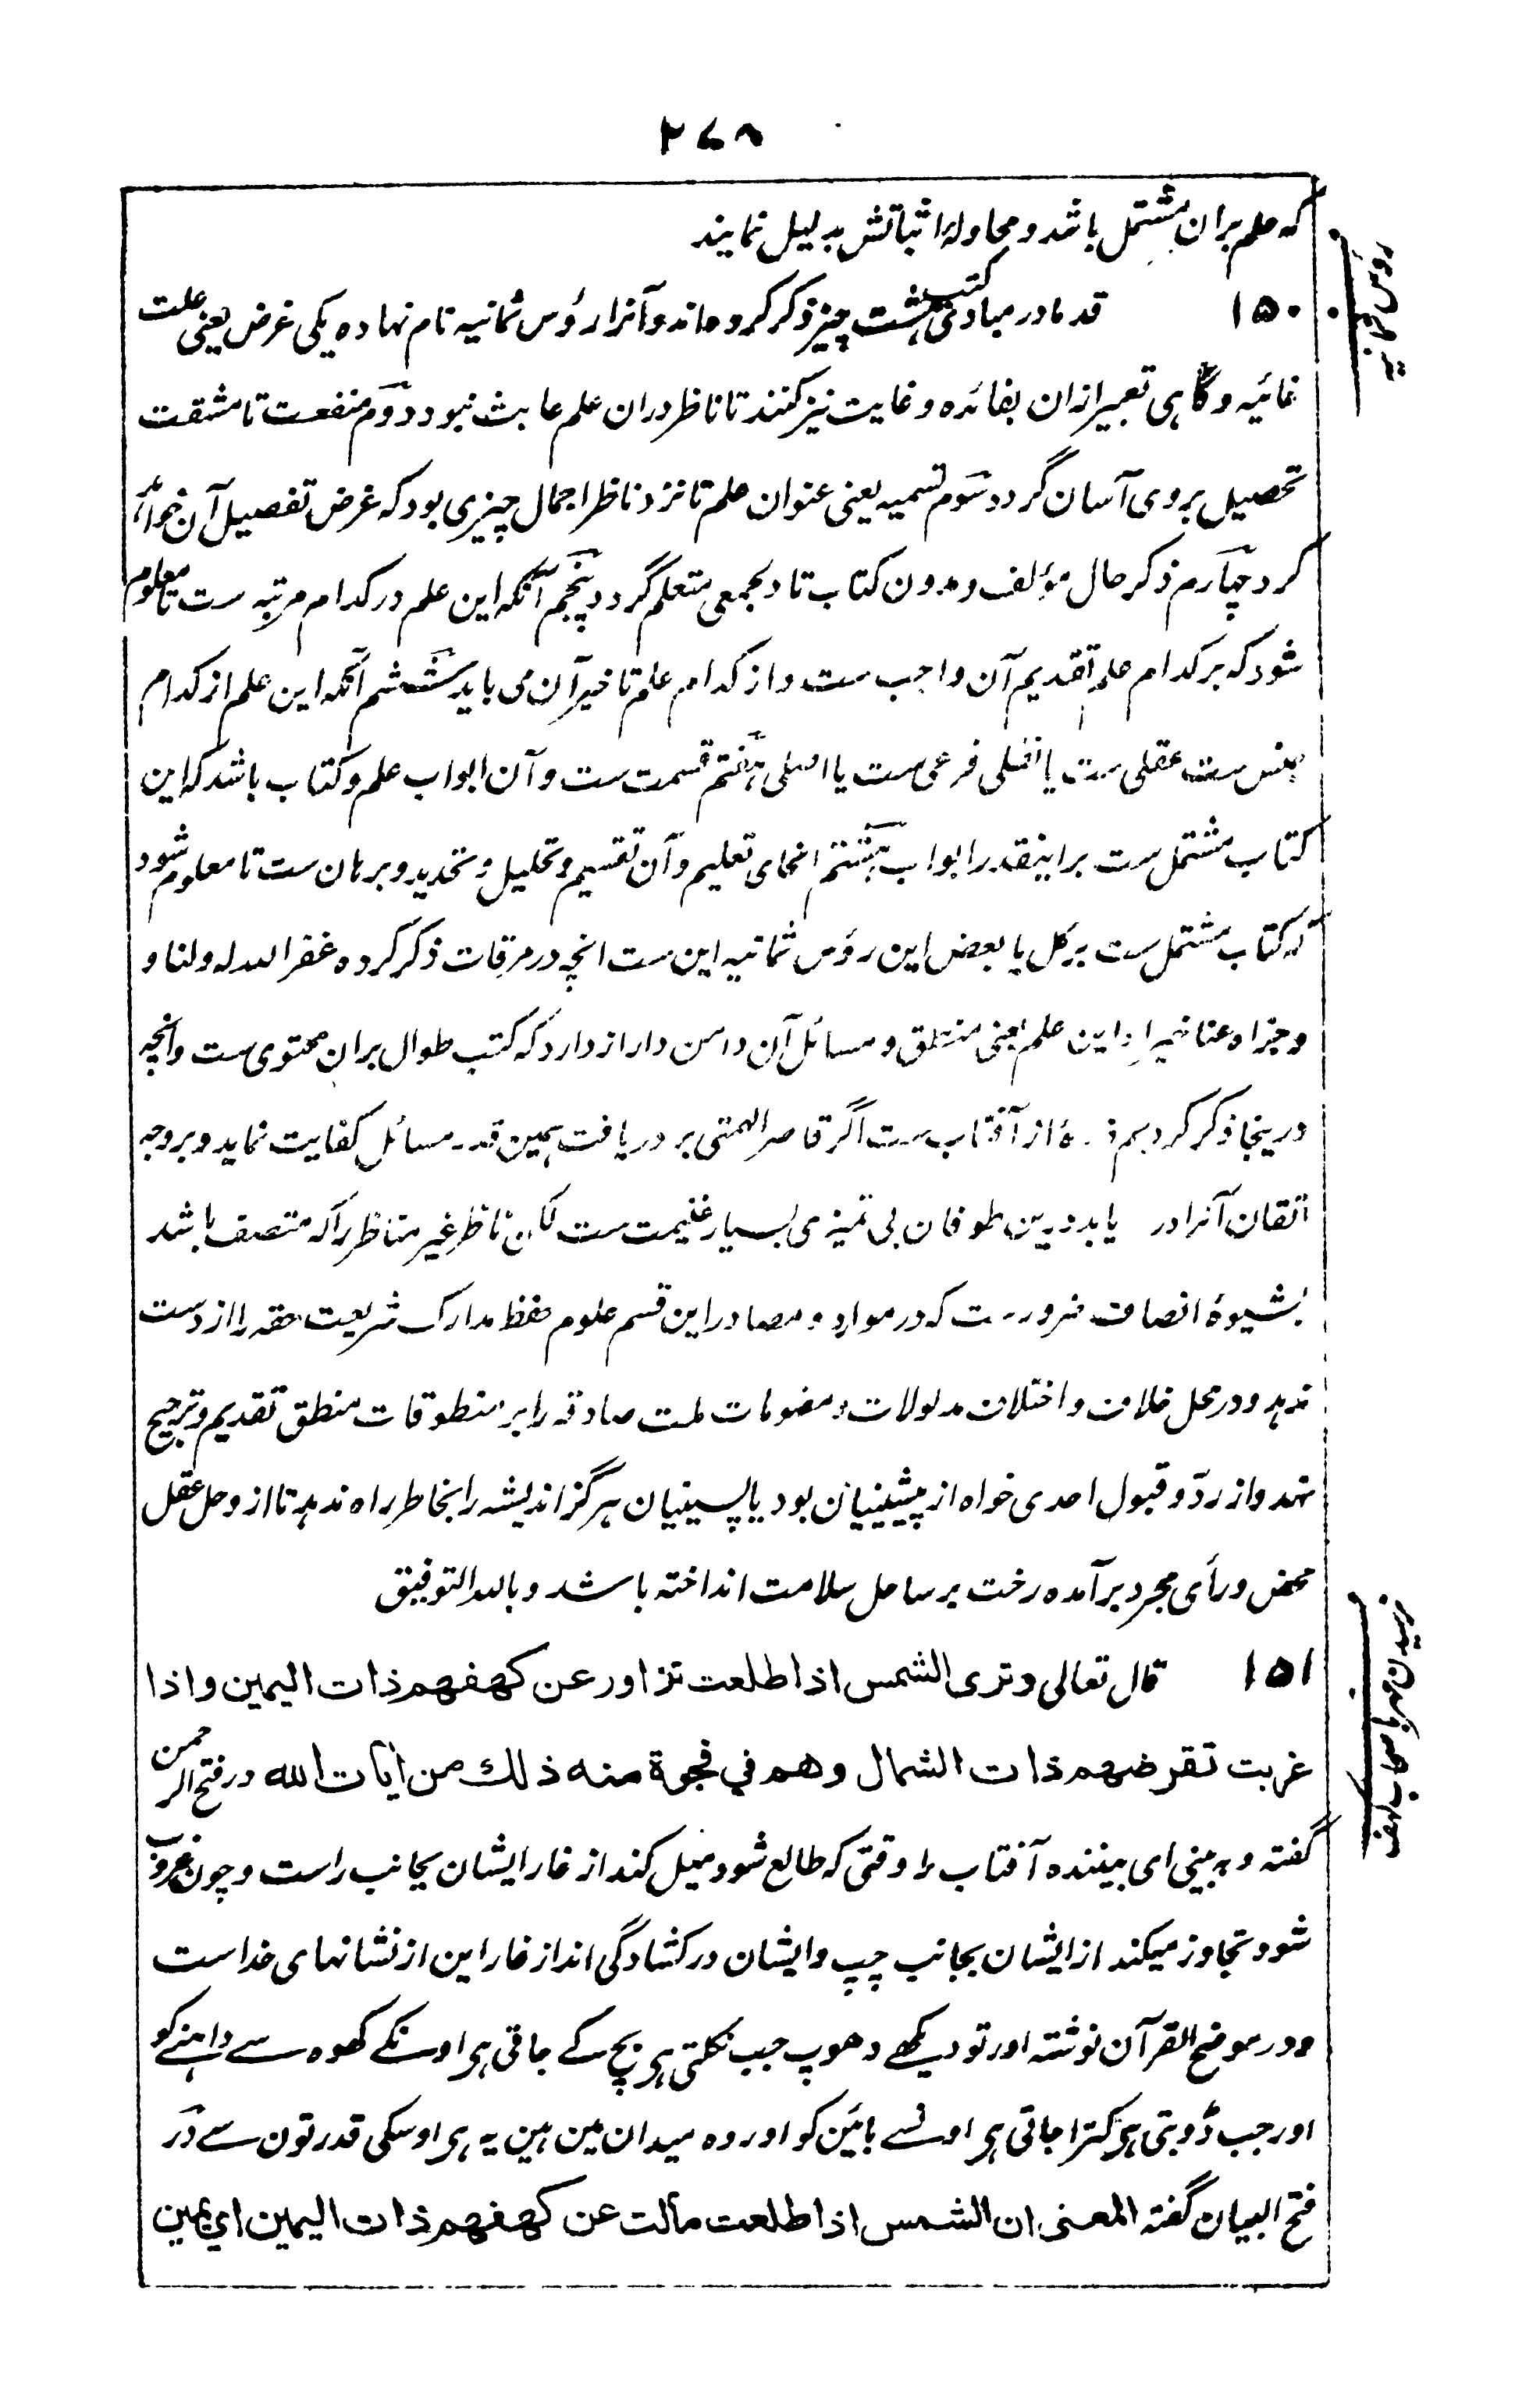 ۲۶۸
که علم بران مشتمل باشد و محاولۀ اثباتش بدلیل نمایند
۱۵۰ قدما در مبادی کتب هشت چیز ذکر کرده اند و آنرا رؤس ثمانیه نام نهاده یکی غرض یعنی علت
غائیه و گاهی تعبیر ازان بفائده و غایت نیز کنند تا ناظر دران علم عابث نبود دوم منفعت تا مشقت
تحصیل بروی آسان گردد سوم تسمیه یعنی عنوان علم تا نزد ناظر اجمال چیزی بود که غرض تفصیل آن خواهد
کرد چهارم ذکر حال مؤلف و مدون کتاب تا دلجمعی متعلم گردد پنجم آنکه این علم در کدام مرتبه ست تا معلوم
شود که بر کدام علم تقدیم آن واجب ست و از کدام علم تاخیر آن می باید ششم آنکه این علم از کدام
جنس ست عقلی ست یا نقلی فرعی ست یا اصلی هفتم قسمت ست و آن ابواب علم و کتاب باشد که این
کتاب مشتمل ست بر اینقدر ابواب هشتم انحای تعلیم و آن تقسیم و تحلیل و تحدید و برهان ست تا معلوم شود
که کتاب مشتمل ست بر کل یا بعض این رؤس ثمانیه این ست انچه در مرقات ذکر کرده غفر الله له ولنا و
وجزاه عنا خیرا و این علم یعنی منطق و مسائل آن دامن دراز دارد که کتب طوال بران محتوی ست وانچه
درینجا ذکر کردیم ذرۂ از آفتاب ست اگر قاصر الهمتی بر دریافت همین قدر مسائل کفایت نماید و بروجه
اتقان آنرا در یابد درین طوفان بی تمیزی بسیار غنیمت ست لکن ناظر غیر متناظر را که متصف باشد
بشیوۂ انصاف ضرورست که در موارد و مصادر این قسم علوم حفظ مدارک شریعت حقه را از دست
ندهد و در محل خلاف و اختلاف مدلولات و مفهومات ملت صادقه را بر منطوقات منطق تقدیم و ترجیح
نهد و از ردّ و قبول احدی خواه از پیشینیان بود یا پسینیان هرگز اندیشه را بخاطر راه ندهد تا از وحل عقل
محض و رأی مجرد برآمده رخت بر ساحل سلامت انداخته باشد و بالله التوفیق
۱۵۱ قال تعالی وتری الشمس اذا طلعت تزاور عن کهفهم ذات الیمین واذا
غربت تقرضهم ذات الشمال وهم في فجوة منه ذلك من ایات الله در فتح الرحمن
گفته و به بینی ای بیننده آفتاب را وقتی که طالع شود میل کند از غار ایشان بجانب راست و چون غروب
شود تجاوز میکند از ایشان بجانب چپ و ایشان در کشادگی اند از غار این از نشانهای خداست
ودر موضح القرآن نوشته اور تو دیکھے دھوپ جب نکلتی ہی بچ کے جاتی ہی اونکے کھوہ سے داہنے کو
اور جب ڈوبتی ہی کترا جاتی ہی اونسے بائین کو اور وہ میدان مین ہین یہ ہی اوسکی قدرتون سے در
فتح البیان گفته المعنی ان الشمس اذا طلعت مالت عن کهفهم ذات الیمین اي یمین